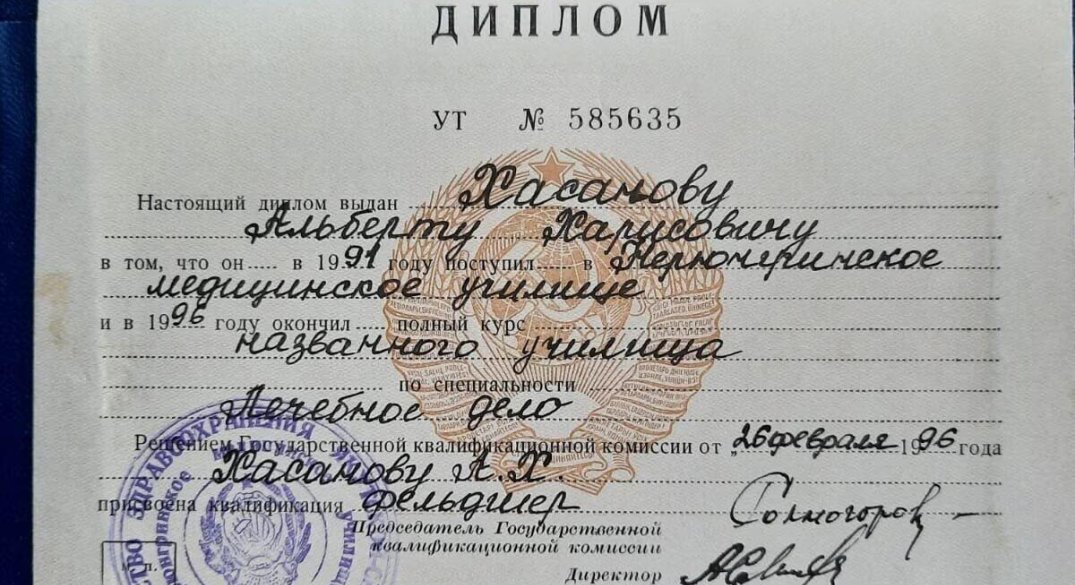 ДИПЛОМ
УТ № 585635
Настоящий диплом выдан Хасанову
Альберту Харисовичу
в том, что он в 1991 году поступил в Нерюнгринское
медицинское училище
и в 1996 году окончил полный курс
названного училища
по специальности
Лечебное дело
Решением Государственной квалификационной комиссии от „26 февраля 1996 года
Хасанову А.Х.
присвоена квалификация фельдшер
Председатель Государственной
квалификационной комиссии
Директор
ЗДРАВООХРАНЕНИЯ